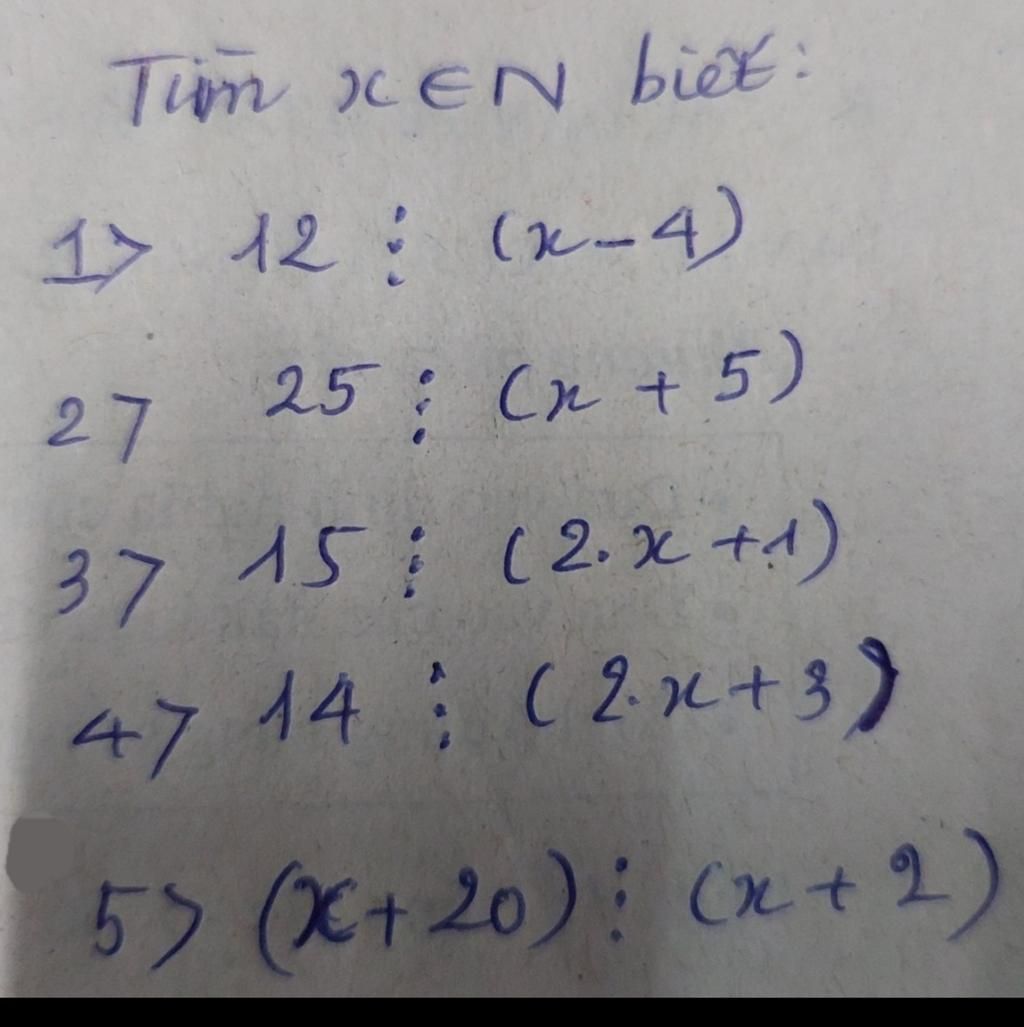 Tìm x ∈ N biết:
1> 12 ⋮ (x - 4)
2> 25 ⋮ (x + 5)
3> 15 ⋮ (2.x + 1)
4> 14 ⋮ (2.x + 3)
5> (x + 20) ⋮ (x + 2)